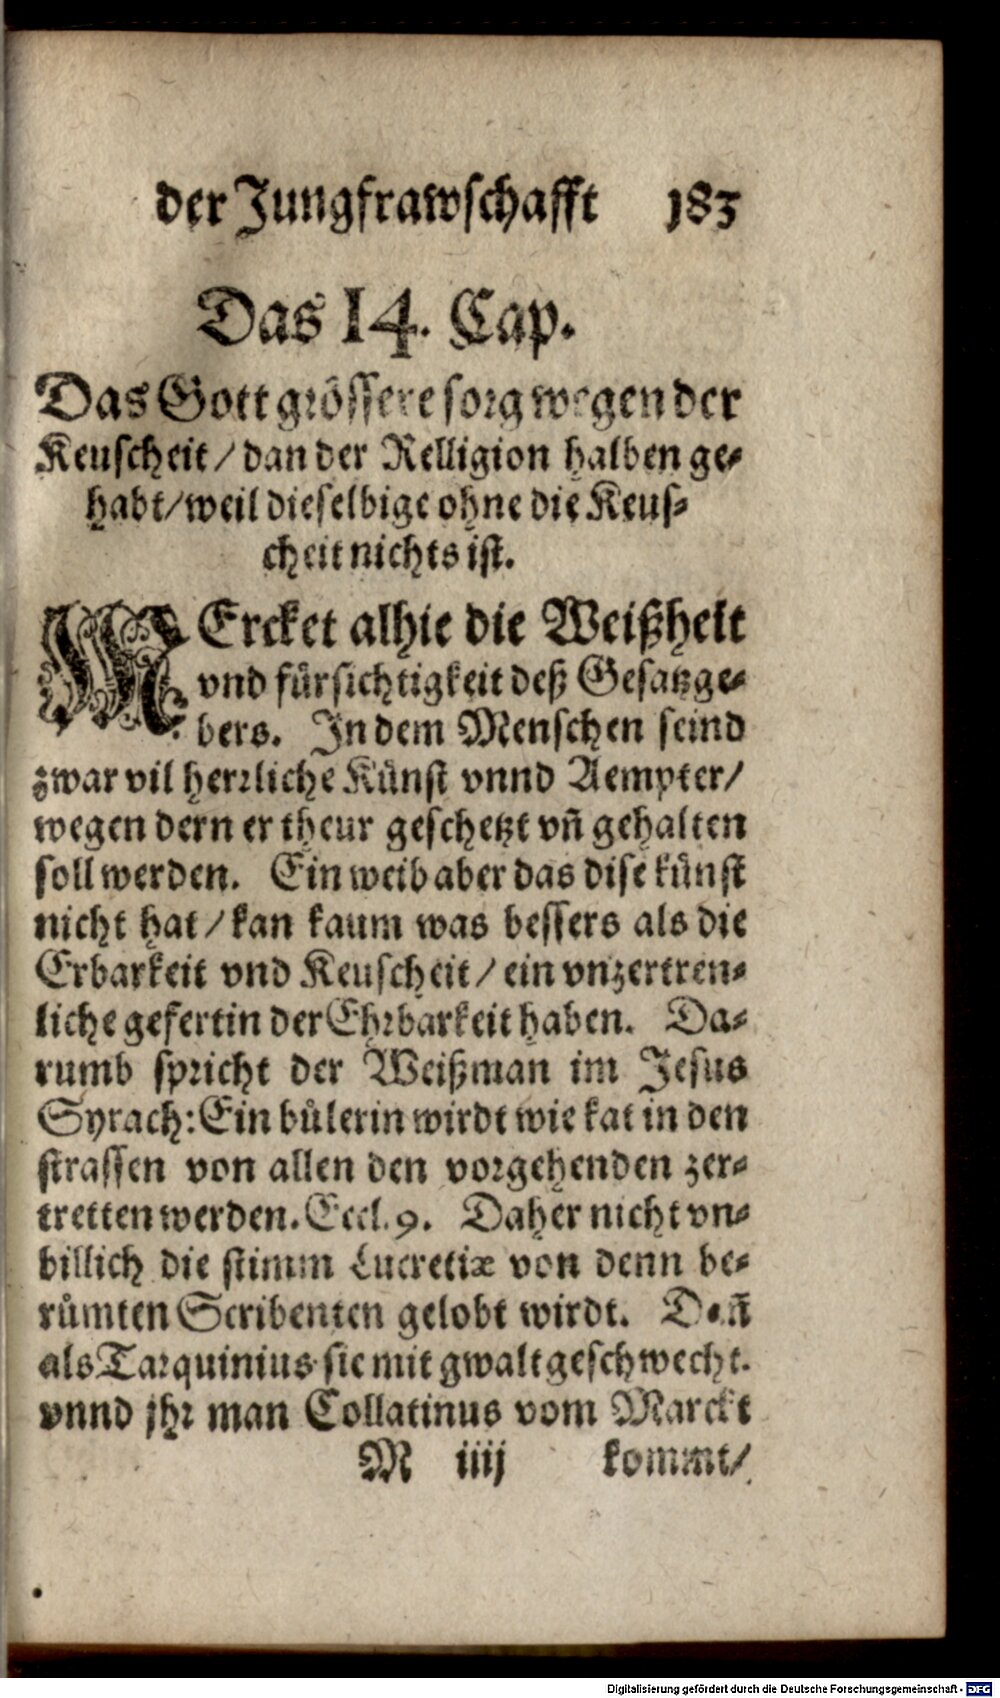 der Jungfrawschafft 183
Das 14. Cap.
Das Gott grössere sorg wegen der
Keuscheit / dan der Relligion halben ge-
habt / weil dieselbige ohne die Keus-
cheit nichts ist.
MErcket alhie die Weißheit
vnd fürsichtigkeit deß Gesatzge-
bers. In dem Menschen seind
zwar vil herrliche Künst vnnd Aempter /
wegen dern er theur geschetzt vñ gehalten
soll werden. Ein weib aber das dise künst
nicht hat / kan kaum was bessers als die
Erbarkeit vnd Keuscheit / ein vnzertren-
liche gefertin der Ehrbarkeit haben. Da-
rumb spricht der Weißman im Jesus
Syrach: Ein bůlerin wirdt wie kat in den
strassen von allen den vorgehenden zer-
tretten werden. Eccl. 9. Daher nicht vn-
billich die stimm Lucretiæ von denn be-
růmten Scribenten gelobt wirdt. Dañ
als Tarquinius sie mit gwalt geschwecht.
vnnd jhr man Collatinus vom Marckt
M iiij kommt /
Digitalisierung gefördert durch die Deutsche Forschungsgemeinschaft - DFG